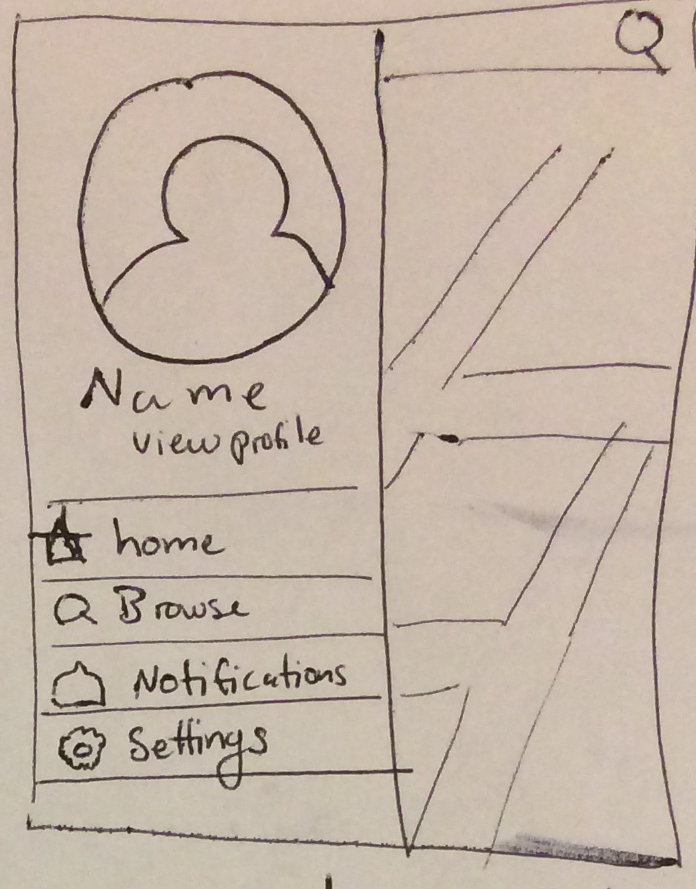 Name
view profile
home
Browse
Notifications
Settings